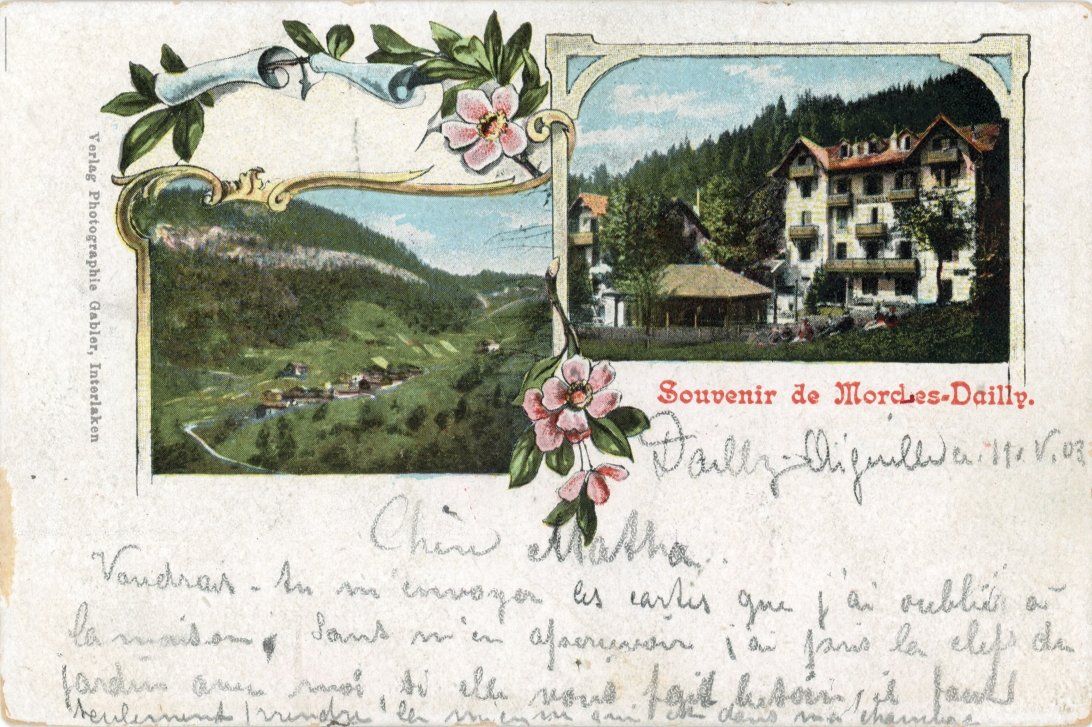 Verlag Photographie Gabler, Interlaken
Souvenir de Morcles-Dailly.
Dailly-Aiguille 11.V.03
Chère Matha
Voudrais-tu m'envoyer les cartes que j'ai oublié à
la maison, Sans m'en apercevoir j'ai pris la clefs du
jardin avec moi, si elle vous fait besoin, il faut
seulement prendre la mienne qui est dans ma chambre